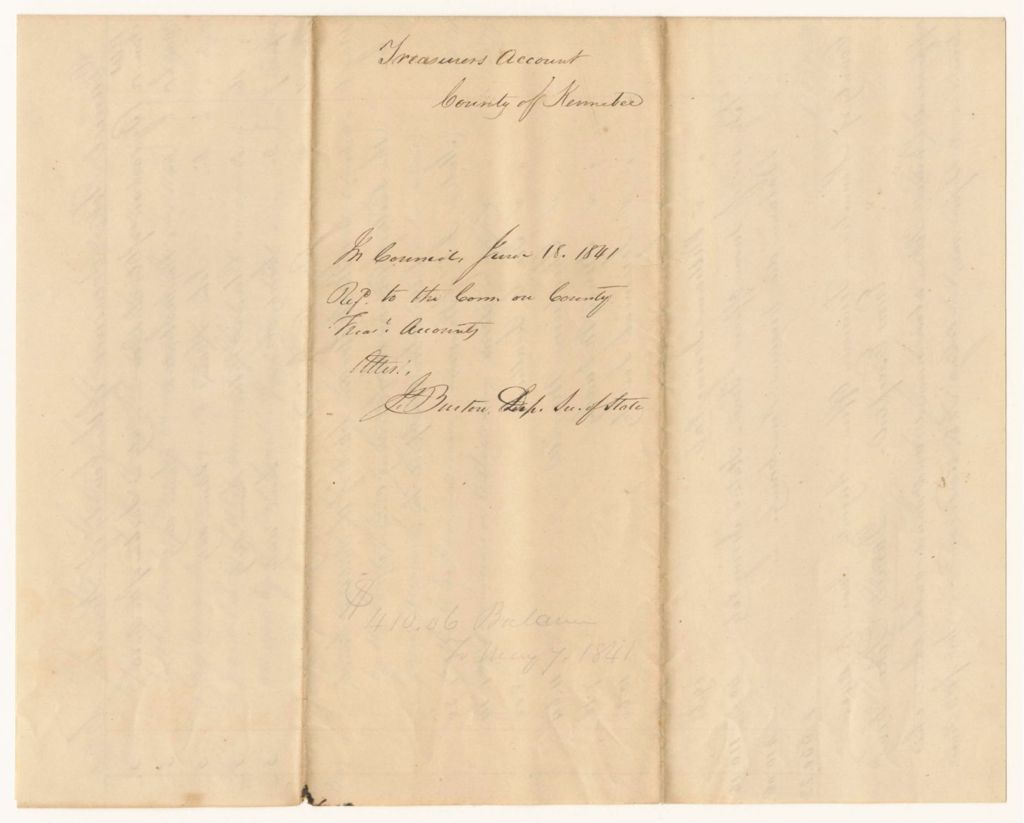 Treasurers Account
County of Kennebec
In Council, June 18. 1841
Refd. to the Com on County
Treas. Accounts
Attest,
J. Burton, Dep. Sec. of State
$410.06 Balance
To May 7. 1841